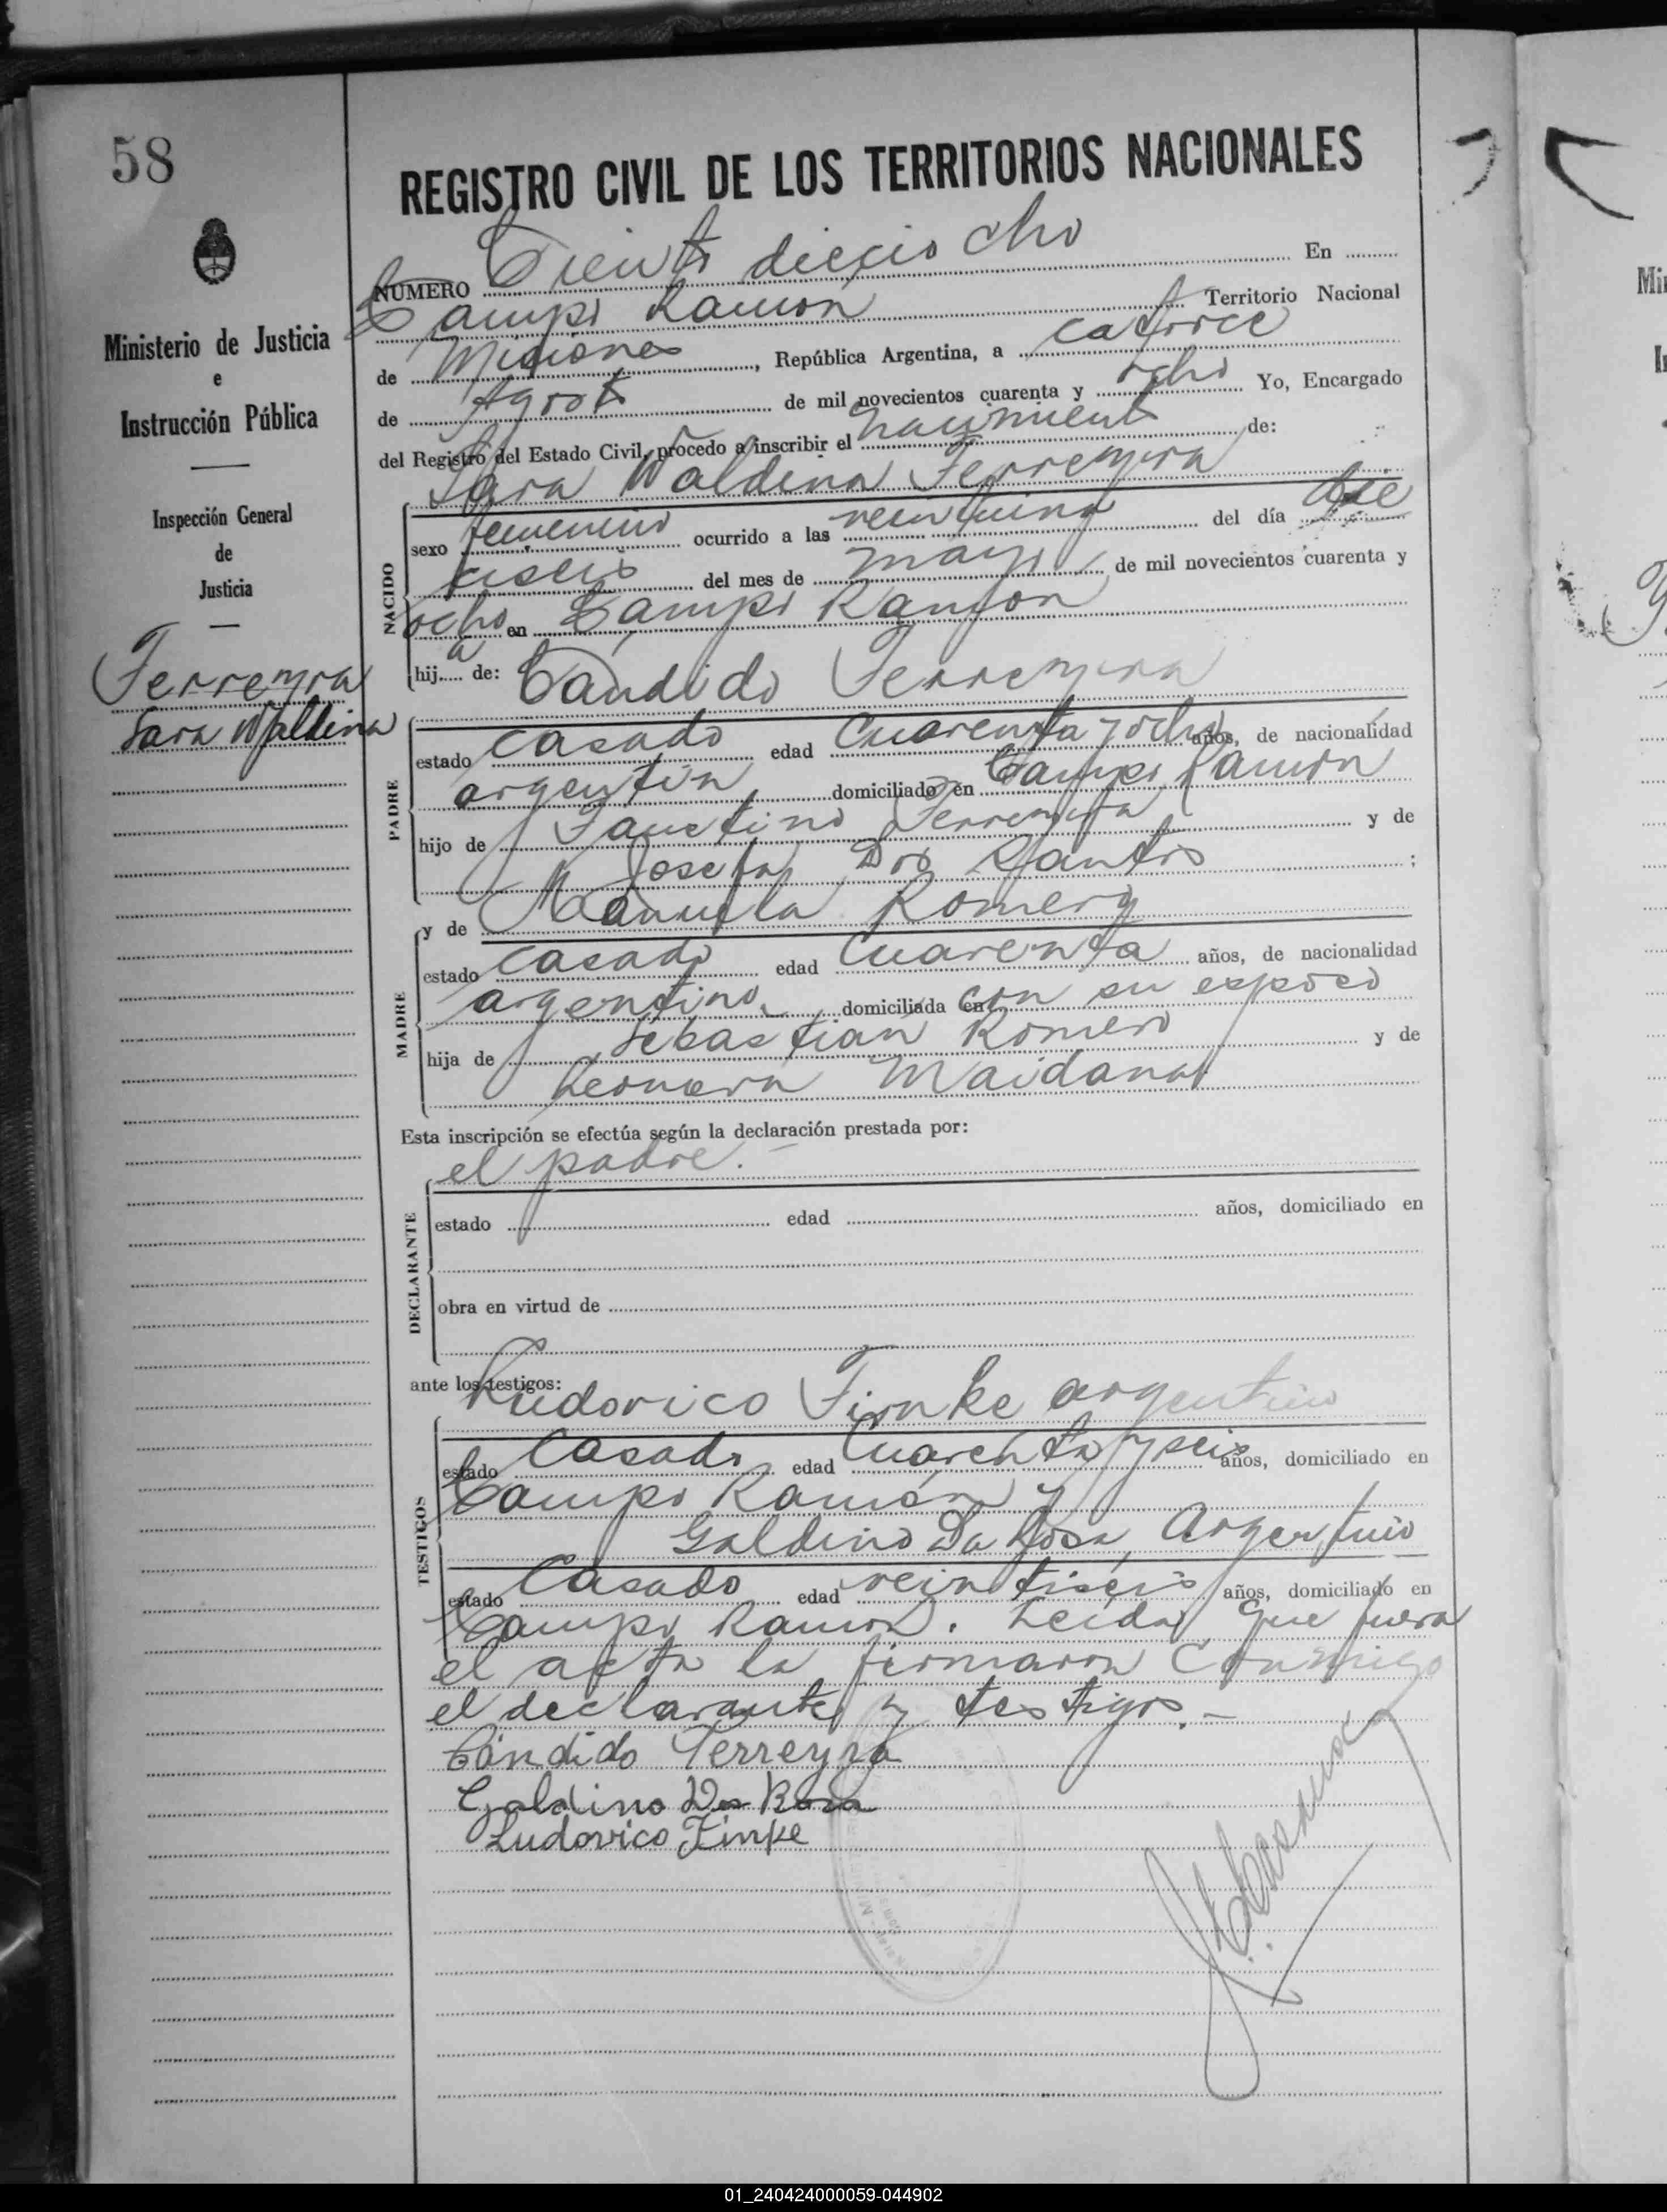 58
REGISTRO CIVIL DE LOS TERRITORIOS NACIONALES
NUMERO Ciento dieciocho En
Campo Ramón Territorio Nacional
de Misiones, República Argentina, a catorce
de Agosto de mil novecientos cuarenta y ocho Yo, Encargado
del Registro del Estado Civil, procedo a inscribir el nacimiento de:
Sara Waldina Ferreyra
NACIDO
sexo femenino ocurrido a las veintiuna del día die
ciseis del mes de mayo de mil novecientos cuarenta y
ocho en Campo Ramón
hija de: Cándido Ferreyra
PADRE
estado casado edad Cuarenta y ocho años, de nacionalidad
argentin domiciliado en Campo Ramón
hijo de Faustino Ferreyra y de
Josefa Dos Santos ;
MADRE
y de Manuela Romero
estado casado edad Cuarenta años, de nacionalidad
argentina domiciliada en con su esposo
hija de Sebastián Romero y de
Leonora Maidana
Esta inscripción se efectúa según la declaración prestada por:
el padre.-
DECLARANTE
estado edad años, domiciliado en
obra en virtud de
ante los testigos: Ludovico Finke argentino
TESTIGOS
estado Casado edad Cuarenta y seis años, domiciliado en
Campo Ramón y
Galdino Da Rosa, Argentino
estado Casado edad veintiseis años, domiciliado en
Campo Ramón. Leída que fuera
el acta la firmaron conmigo
el declarante y testigos.-
Cándido Ferreyra
Galdino Da Rosa
Ludovico Finke
Ministerio de Justicia
e
Instrucción Pública
Inspección General
de
Justicia
Ferreyra
Sara Waldina
01_240424000059-044902